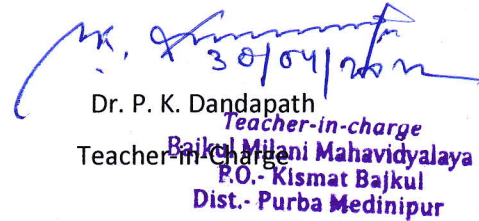 30/04/2022
Dr. P. K. Dandapath
Teacher-in-charge
Teacher-in-Charge
Bajkul Milani Mahavidyalaya
P.O.- Kismat Bajkul
Dist.- Purba Medinipur